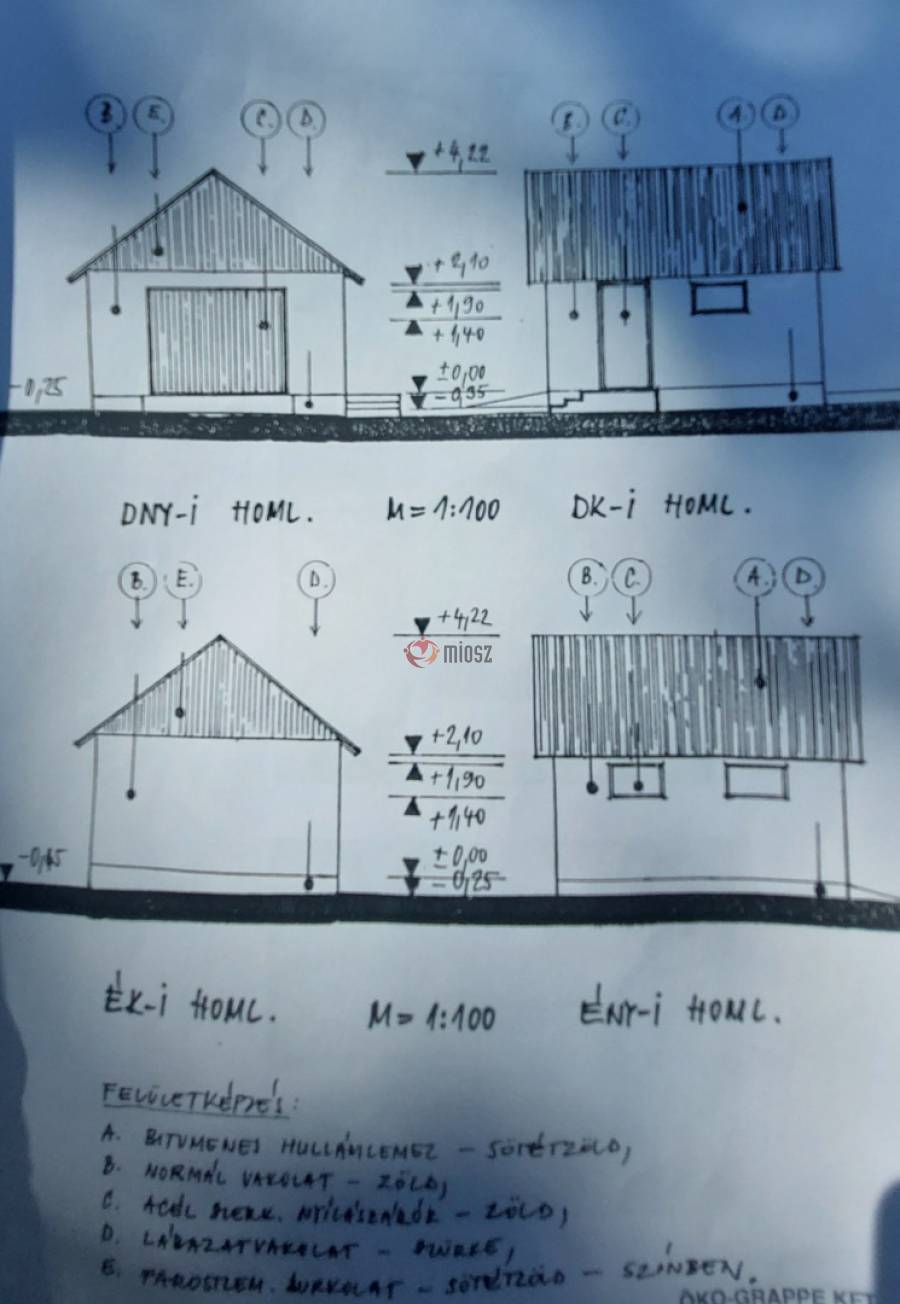 B. E. C. D. B. C. A. D.
+4,22
+2,10
+1,90
+1,40
±0,00
-0,25
DNY-i HOML. M=1:100 DK-i HOML.
B. E. D. B. C. A. D.
+4,22
miosz
+2,10
+1,90
+1,40
±0,00
-0,25
ÉK-i HOML. M=1:100 ÉNY-i HOML.
FELÜLETKÉPZÉS:
A. BITUMENES HULLÁMLEMEZ - SÖTÉTZÖLD,
B. NORMÁL VAKOLAT - ZÖLD,
C. ACÉL SZERK. NYÍLÁSZÁRÓK - ZÖLD,
D. LÁBAZATVAKOLAT - SZÜRKE,
E. BURKOLAT - SÖTÉTZÖLD - SZÍNBEN.
ÖKO-GRAPPE